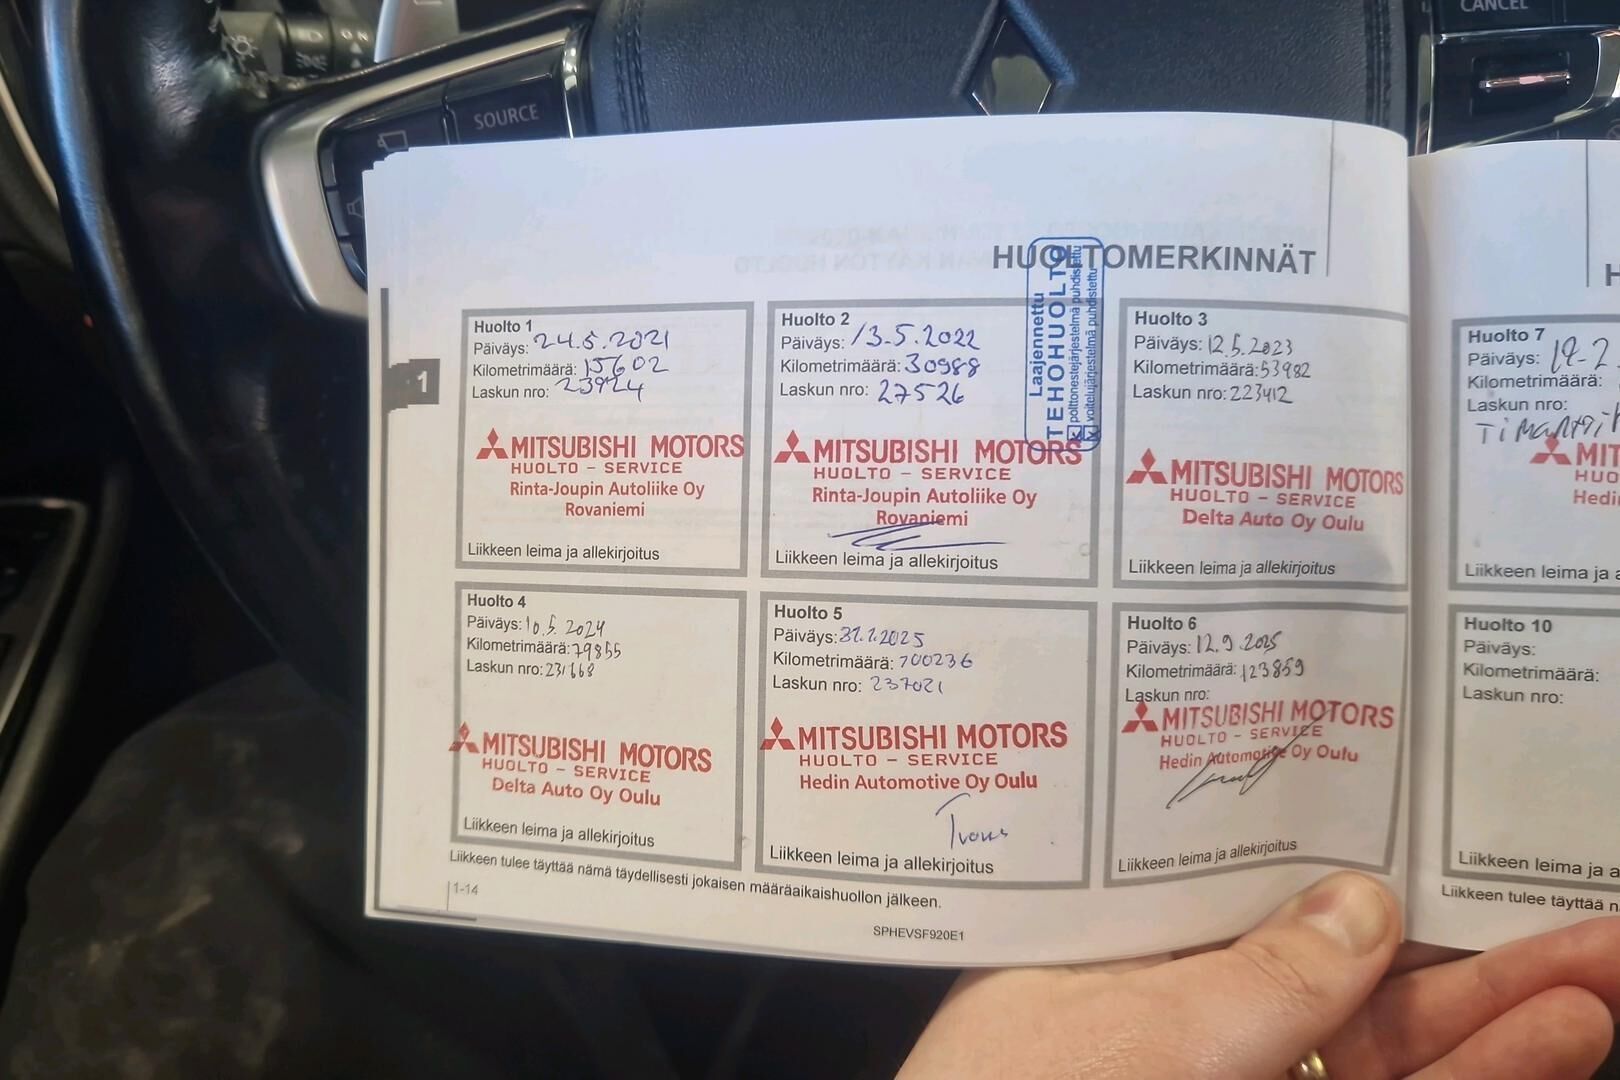 CANCEL
ON
SOURCE
HUOLTOMERKINNÄT
Laajennettu
TEHOHUOLTO
polttonestejärjestelmä puhdistettu
X voitelujärjestelmä puhdistettu
1
Huolto 1
Päiväys: 24.5.2021
Kilometrimäärä: 15602
Laskun nro: 23924
MITSUBISHI MOTORS
HUOLTO - SERVICE
Rinta-Joupin Autoliike Oy
Rovaniemi
Liikkeen leima ja allekirjoitus
Huolto 2
Päiväys: 13.5.2022
Kilometrimäärä: 30988
Laskun nro: 27526
MITSUBISHI MOTORS
HUOLTO - SERVICE
Rinta-Joupin Autoliike Oy
Rovaniemi
Liikkeen leima ja allekirjoitus
Huolto 3
Päiväys: 12.5.2023
Kilometrimäärä: 53982
Laskun nro: 223412
MITSUBISHI MOTORS
HUOLTO - SERVICE
Delta Auto Oy Oulu
Liikkeen leima ja allekirjoitus
Huolto 4
Päiväys: 10.5.2024
Kilometrimäärä: 79855
Laskun nro: 231668
MITSUBISHI MOTORS
HUOLTO - SERVICE
Delta Auto Oy Oulu
Liikkeen leima ja allekirjoitus
Huolto 5
Päiväys: 31.1.2025
Kilometrimäärä: 100236
Laskun nro: 237021
MITSUBISHI MOTORS
HUOLTO - SERVICE
Hedin Automotive Oy Oulu
Liikkeen leima ja allekirjoitus
Huolto 6
Päiväys: 12.9.2025
Kilometrimäärä: 123859
Laskun nro:
MITSUBISHI MOTORS
HUOLTO - SERVICE
Hedin Automotive Oy Oulu
Liikkeen leima ja allekirjoitus
Liikkeen tulee täyttää nämä täydellisesti jokaisen määräaikaishuollon jälkeen.
1-14
SPHEVSF920E1
H
Huolto 7
Päiväys:
Kilometrimäärä:
Laskun nro:
MIT
HUO
Hedi
Liikkeen leima ja a
Huolto 10
Päiväys:
Kilometrimäärä:
Laskun nro:
Liikkeen leima ja a
Liikkeen tulee täyttää n